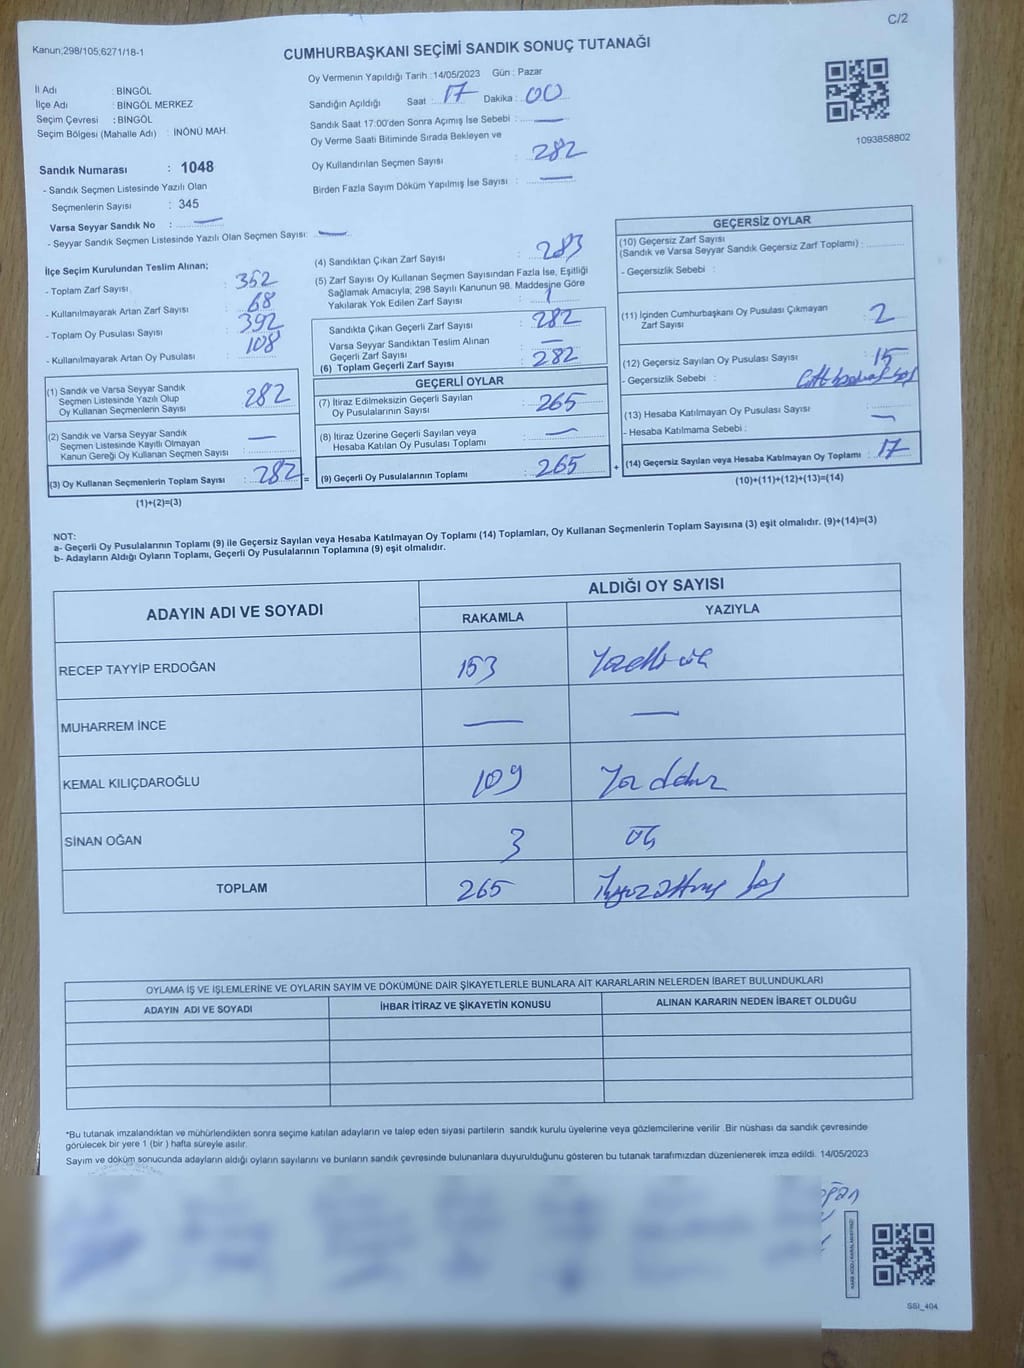 C/2
Kanun;298/105;6271/18-1
CUMHURBAŞKANI SEÇİMİ SANDIK SONUÇ TUTANAĞI
Oy Vermenin Yapıldığı Tarih :14/05/2023 Gün : Pazar
İl Adı : BİNGÖL
İlçe Adı : BİNGÖL MERKEZ
Seçim Çevresi : BİNGÖL
Seçim Bölgesi (Mahalle Adı) : İNÖNÜ MAH.
Sandığın Açıldığı Saat : 17 Dakika : 00
Sandık Saat 17:00'den Sonra Açımış İse Sebebi : —
Oy Verme Saati Bitiminde Sırada Bekleyen ve
Oy Kullandırılan Seçmen Sayısı : 282
Birden Fazla Sayım Döküm Yapılmış İse Sayısı : —
1093858802
Sandık Numarası : 1048
- Sandık Seçmen Listesinde Yazılı Olan
Seçmenlerin Sayısı : 345
Varsa Seyyar Sandık No : —
- Seyyar Sandık Seçmen Listesinde Yazılı Olan Seçmen Sayısı: —
İlçe Seçim Kurulundan Teslim Alınan;
- Toplam Zarf Sayısı : 352
- Kullanılmayarak Artan Zarf Sayısı : 68
- Toplam Oy Pusulası Sayısı : 392
- Kullanılmayarak Artan Oy Pusulası : 108
(1) Sandık ve Varsa Seyyar Sandık
Seçmen Listesinde Yazılı Olup
Oy Kullanan Seçmenlerin Sayısı : 282
(2) Sandık ve Varsa Seyyar Sandık
Seçmen Listesinde Kayıtlı Olmayan
Kanun Gereği Oy Kullanan Seçmen Sayısı : —
(3) Oy Kullanan Seçmenlerin Toplam Sayısı : 282 =
(1)+(2)=(3)
(4) Sandıktan Çıkan Zarf Sayısı : 283
(5) Zarf Sayısı Oy Kullanan Seçmen Sayısından Fazla İse, Eşitliği
Sağlamak Amacıyla; 298 Sayılı Kanunun 98. Maddesine Göre
Yakılarak Yok Edilen Zarf Sayısı : 1
Sandıkta Çıkan Geçerli Zarf Sayısı : 282
Varsa Seyyar Sandıktan Teslim Alınan
Geçerli Zarf Sayısı : —
(6) Toplam Geçerli Zarf Sayısı : 282
GEÇERLİ OYLAR
(7) İtiraz Edilmeksizin Geçerli Sayılan
Oy Pusulalarının Sayısı : 265
(8) İtiraz Üzerine Geçerli Sayılan veya
Hesaba Katılan Oy Pusulası Toplamı : —
(9) Geçerli Oy Pusulalarının Toplamı : 265 +
GEÇERSİZ OYLAR
(10) Geçersiz Zarf Sayısı
(Sandık ve Varsa Seyyar Sandık Geçersiz Zarf Toplamı) :
- Geçersizlik Sebebi :
(11) İçinden Cumhurbaşkanı Oy Pusulası Çıkmayan
Zarf Sayısı : 2
(12) Geçersiz Sayılan Oy Pusulası Sayısı : 15
- Geçersizlik Sebebi :
(13) Hesaba Katılmayan Oy Pusulası Sayısı : —
- Hesaba Katılmama Sebebi :
(14) Geçersiz Sayılan veya Hesaba Katılmayan Oy Toplamı : 17
(10)+(11)+(12)+(13)=(14)
NOT:
a- Geçerli Oy Pusulalarının Toplamı (9) ile Geçersiz Sayılan veya Hesaba Katılmayan Oy Toplamı (14) Toplamları, Oy Kullanan Seçmenlerin Toplam Sayısına (3) eşit olmalıdır. (9)+(14)=(3)
b- Adayların Aldığı Oyların Toplamı, Geçerli Oy Pusulalarının Toplamına (9) eşit olmalıdır.
ADAYIN ADI VE SOYADI ALDIĞI OY SAYISI
RAKAMLA YAZIYLA
RECEP TAYYİP ERDOĞAN 153
MUHARREM İNCE — —
KEMAL KILIÇDAROĞLU 109
SİNAN OĞAN 3 üç
TOPLAM 265
OYLAMA İŞ VE İŞLEMLERİNE VE OYLARIN SAYIM VE DÖKÜMÜNE DAİR ŞİKAYETLERLE BUNLARA AİT KARARLARIN NELERDEN İBARET BULUNDUKLARI
ADAYIN ADI VE SOYADI İHBAR İTİRAZ VE ŞİKAYETİN KONUSU ALINAN KARARIN NEDEN İBARET OLDUĞU
*Bu tutanak imzalandıktan ve mühürlendikten sonra seçime katılan adayların ve talep eden siyasi partilerin sandık kurulu üyelerine veya gözlemcilerine verilir .Bir nüshası da sandık çevresinde
görülecek bir yere 1 (bir ) hafta süreyle asılır.
Sayım ve döküm sonucunda adayların aldığı oyların sayılarını ve bunların sandık çevresinde bulunanlara duyurulduğunu gösteren bu tutanak tarafımızdan düzenlenerek imza edildi. 14/05/2023
SSİ_404